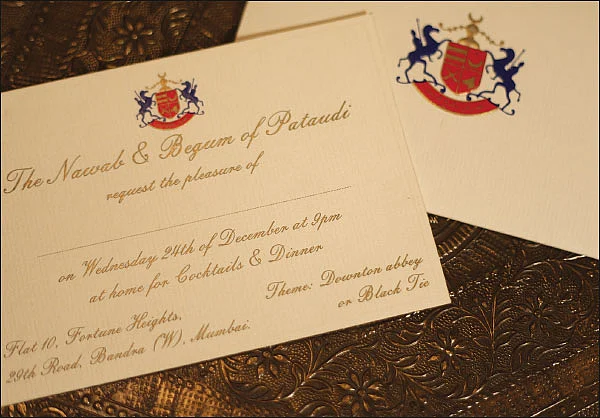 The Nawab & Begum of Pataudi
request the pleasure of
on Wednesday 24th of December at 9pm
at home for Cocktails & Dinner
Theme: Downton abbey
or Black Tie
Flat 10, Fortune Heights,
29th Road, Bandra (W), Mumbai.